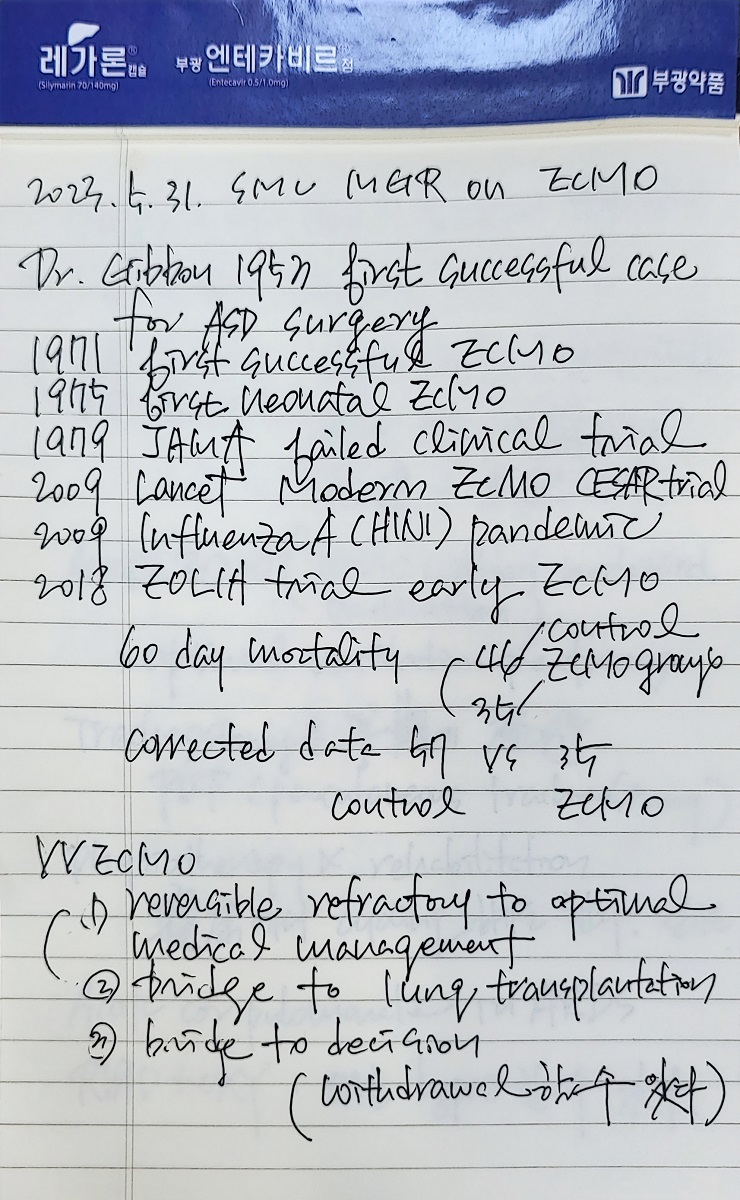 레가론® 캡슐
(Silymarin 70/140mg)
부광 엔테카비르® 정
(Entecavir 0.5/1.0mg)
부광약품
2023. 5. 31. SMC MGR on ECMO
Dr. Gibbon 1953 first successful case
for ASD surgery
1971 first successful ECMO
1975 first neonatal ECMO
1979 JAMA failed clinical trial
2009 Lancet Modern ECMO CESAR trial
2009 Influenza A (H1N1) pandemic
2018 EOLIA trial early ECMO
60 day mortality 46 control
35 ECMO group
corrected data 57 vs 35
control ECMO
VV ECMO
1) reversible, refractory to optimal
medical management
② bridge to lung transplantation
③ bridge to decision
(withdrawal 할 수 있다)